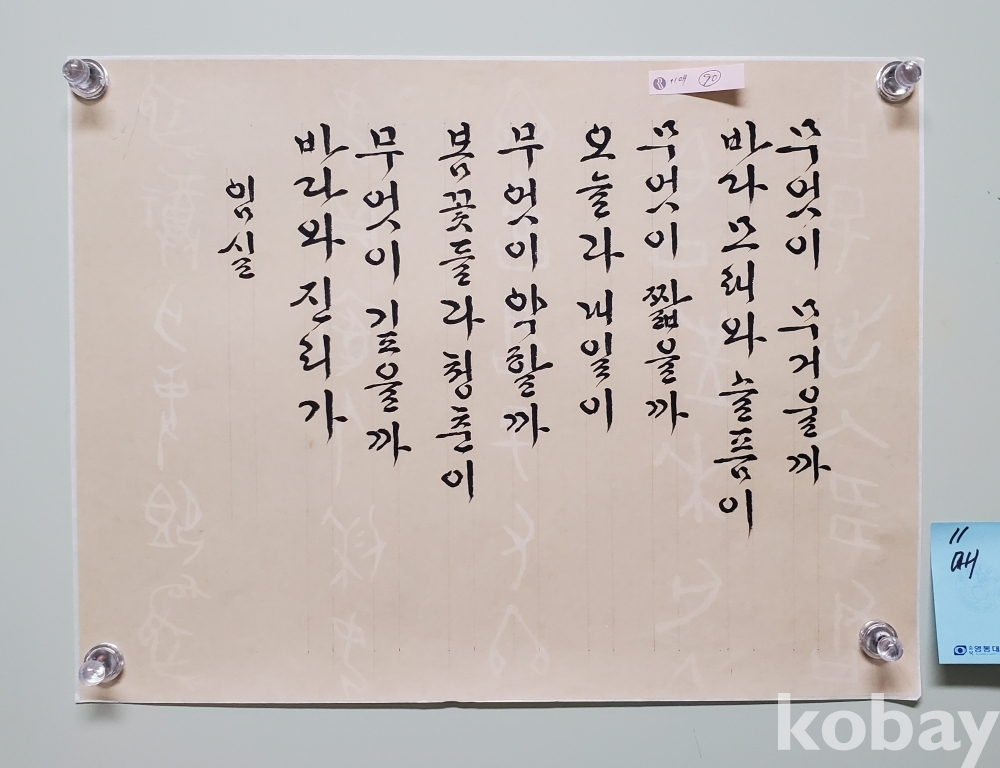 무엇이 무거울까
바라모래와 슬픔이
무엇이 짧을까
오늘라 내일이
무엇이 약할까
봄꽃들라 청춘이
무엇이 깊을까
바라와 진리가
임실
90
매
영동대
kobay